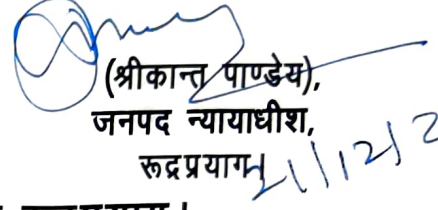 (श्रीकान्त पाण्डेय),
जनपद न्यायाधीश,
रूद्रप्रयाग।